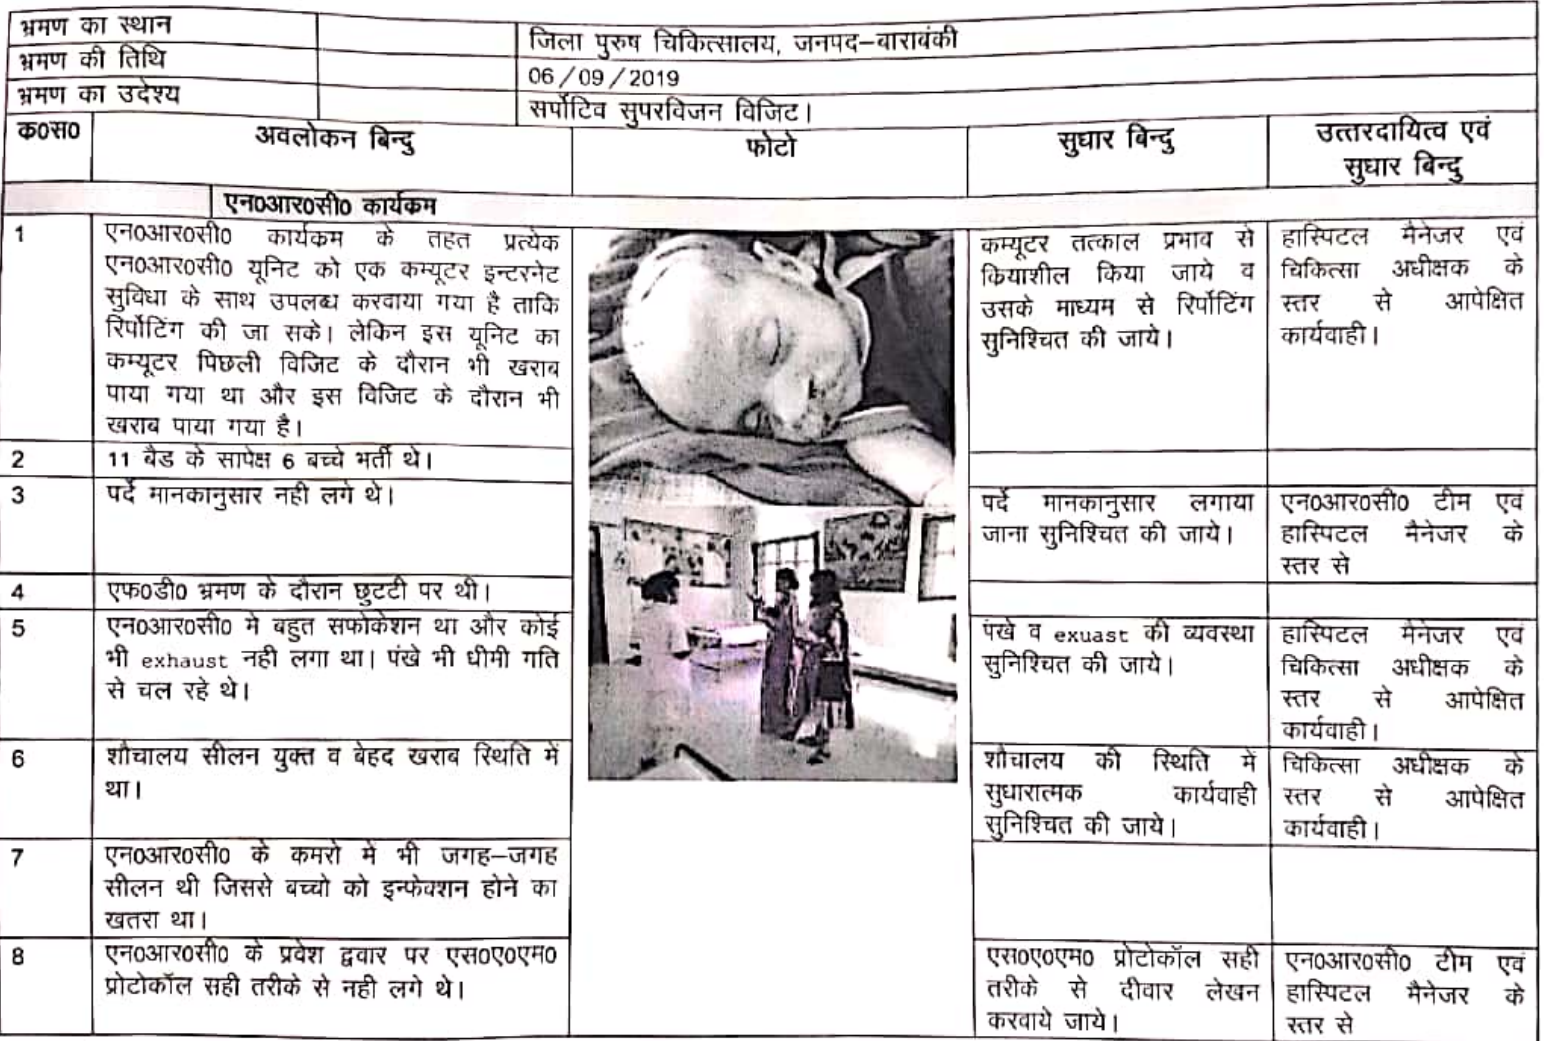 भ्रमण का स्थान जिला पुरुष चिकित्सालय, जनपद–बाराबंकी
भ्रमण की तिथि 06/09/2019
भ्रमण का उदेश्य सर्पोटिव सुपरविजन विजिट।
क०स० अवलोकन बिन्दु फोटो सुधार बिन्दु उत्तरदायित्व एवं
सुधार बिन्दु
एन०आर०सी० कार्यकम
1 एन०आर०सी० कार्यकम के तहत प्रत्येक
एन०आर०सी० यूनिट को एक कम्यूटर इन्टरनेट
सुविधा के साथ उपलब्ध करवाया गया है ताकि
रिर्पोटिंग की जा सके। लेकिन इस यूनिट का
कम्यूटर पिछली विजिट के दौरान भी खराब
पाया गया था और इस विजिट के दौरान भी
खराब पाया गया है।
कम्यूटर तत्काल प्रभाव से
कियाशील किया जाये व
उसके माध्यम से रिर्पोटिंग
सुनिश्चित की जाये।
हास्पिटल मैनेजर एवं
चिकित्सा अधीक्षक के
स्तर से आपेक्षित
कार्यवाही।
2 11 बैड के सापेक्ष 6 बच्चे भर्ती थे।
3 पर्दे मानकानुसार नही लगे थे।
पर्दे मानकानुसार लगाया
जाना सुनिश्चित की जाये।
एन०आर०सी० टीम एवं
हास्पिटल मैनेजर के
स्तर से
4 एफ०डी० भ्रमण के दौरान छुटटी पर थी।
5 एन०आर०सी० मे बहुत सफोकेशन था और कोई
भी exhaust नही लगा था। पंखे भी धीमी गति
से चल रहे थे।
पंखे व exuast की व्यवस्था
सुनिश्चित की जाये।
हास्पिटल मैनेजर एवं
चिकित्सा अधीक्षक के
स्तर से आपेक्षित
कार्यवाही।
6 शौचालय सीलन युक्त व बेहद खराब स्थिति में
था।
शौचालय की स्थिति में
सुधारात्मक कार्यवाही
सुनिश्चित की जाये।
चिकित्सा अधीक्षक के
स्तर से आपेक्षित
कार्यवाही।
7 एन०आर०सी० के कमरो में भी जगह–जगह
सीलन थी जिससे बच्चो को इन्फेक्शन होने का
खतरा था।
8 एन०आर०सी० के प्रवेश द्ववार पर एस०ए०एम०
प्रोटोकॉल सही तरीके से नही लगे थे।
एस०ए०एम० प्रोटोकॉल सही
तरीके से दीवार लेखन
करवाये जाये।
एन०आर०सी० टीम एवं
हास्पिटल मैनेजर के
स्तर से